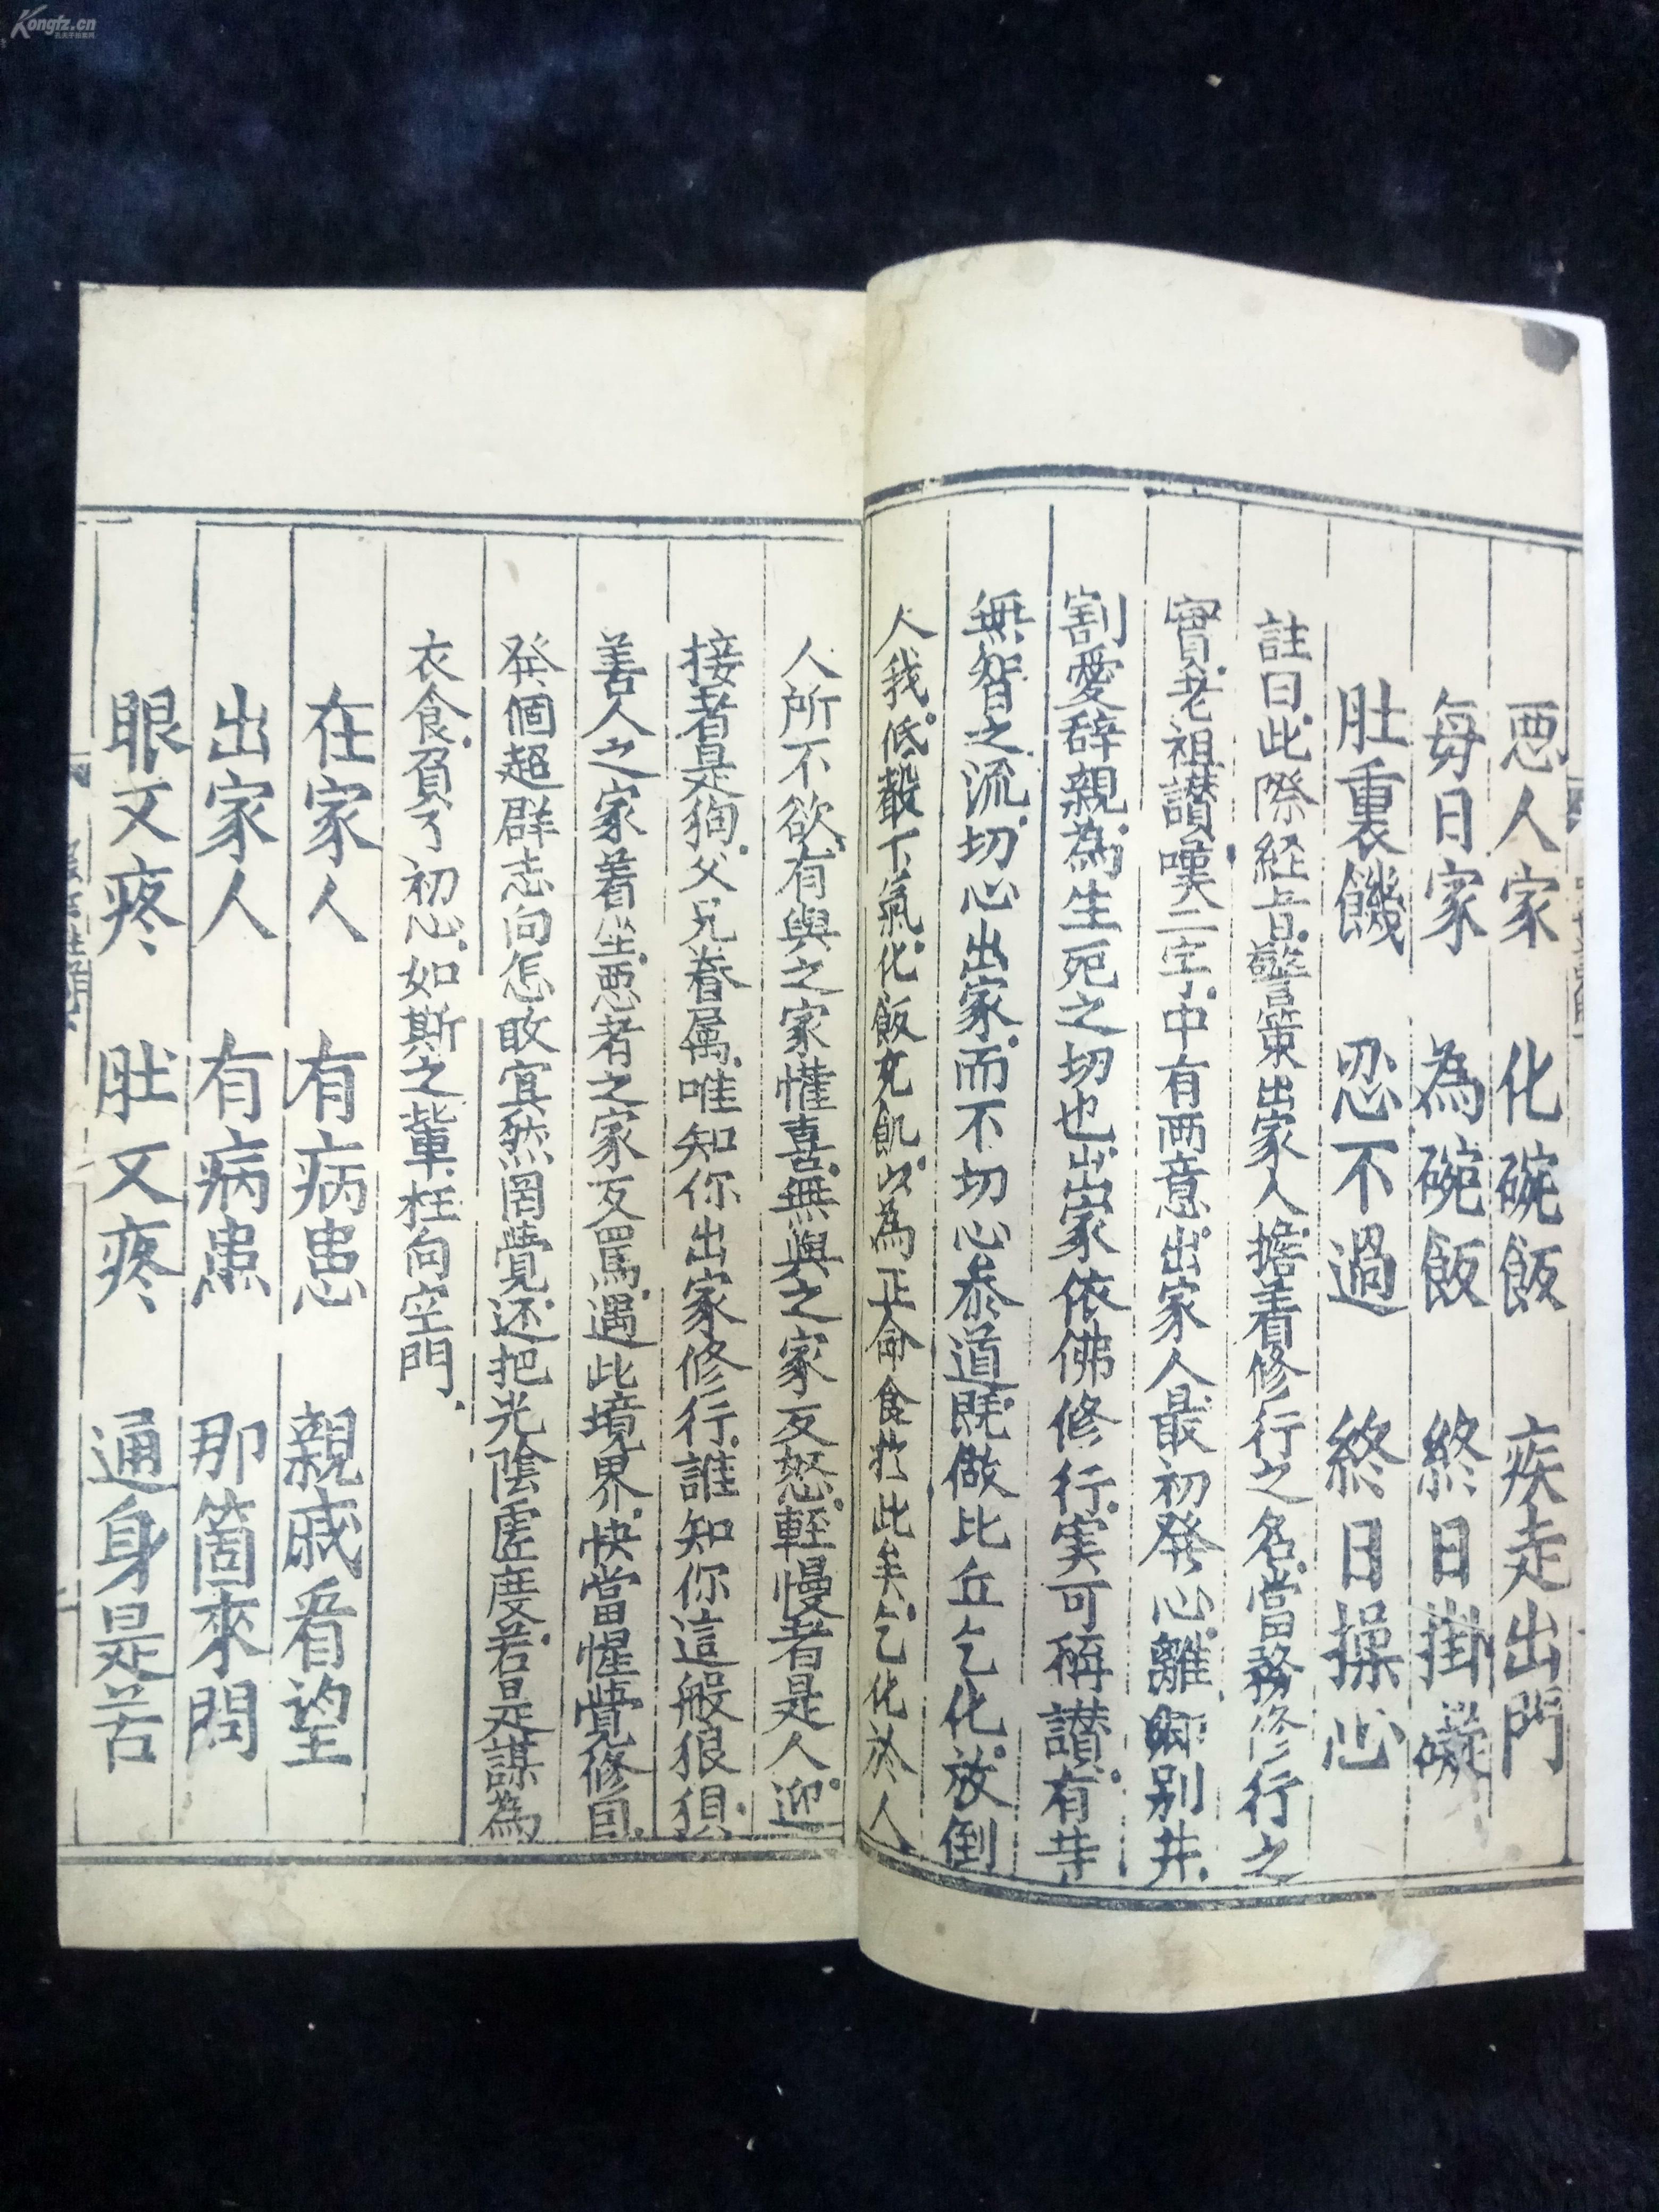 恶人家 化碗飯 疾走出門
每日家 為碗飯 終日掛礙
肚裏饑 忍不過 終日操心
註曰此際経旨警策出家人擔着修行之名當務修行之
實老祖讃嘆二字中有两意出家人最初發心離鄉别井
割愛辞親為生死之切也出家依佛修行実可稱讃有等
無智之流切心出家而不切心叅道既做比丘乞化放倒
人我低聲下氣化飯充飢以為正命食扵此矣乞化於人
人所不欲有與之家懽喜無與之家反怒輕慢者是人迎
接者是狗父兄眷属唯知你出家修行誰知你這般狼狽
善人之家着坐恶者之家反罵遇此境界快當惺覺修因
發個超群志向怎敢寘然罔覺还把光陰虚度若是謀為
衣食負了初心如斯之輩枉向空門
在家人 有病患 親戚看望
出家人 有病患 那箇來問
眼又疼 肚又疼 通身是苦
Kongfz.cn